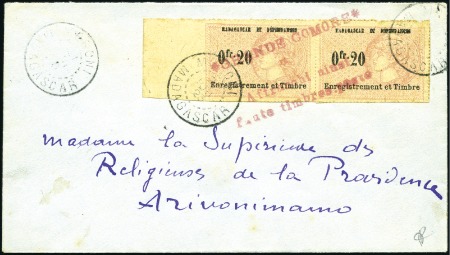 MADAGASCAR ET DÉPENDANCES MADAGASCAR ET DÉPENDANCES
*GRANDE COMORE*
0fr.20 0fr.20
Enregistrement et Timbre Enregistrement et Timbre
faute timbres-poste
MADAGASCAR
MADAGASCAR
madame la Supérieure des
Religieuses de la Providence
Arivonimamo